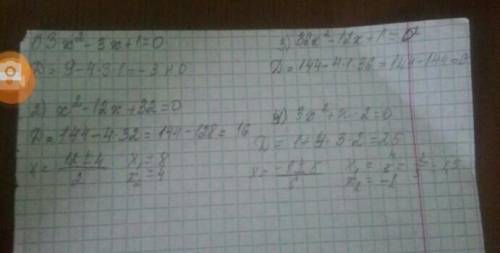 3x² - 3x + 1 = 0
D = 9 - 4·3·1 = -3 < 0
2) x² - 12x + 32 = 0
D = 144 - 4·32 = 144 - 128 = 16
x = (12 ± 4)/2 x₁ = 8
x₂ = 4
3) 36x² - 12x + 1 = 0
D = 144 - 4·1·36 = 144 - 144 = 0
4) 3x² + x - 2 = 0
D = 1 + 4·3·2 = 25
x₂ = -1